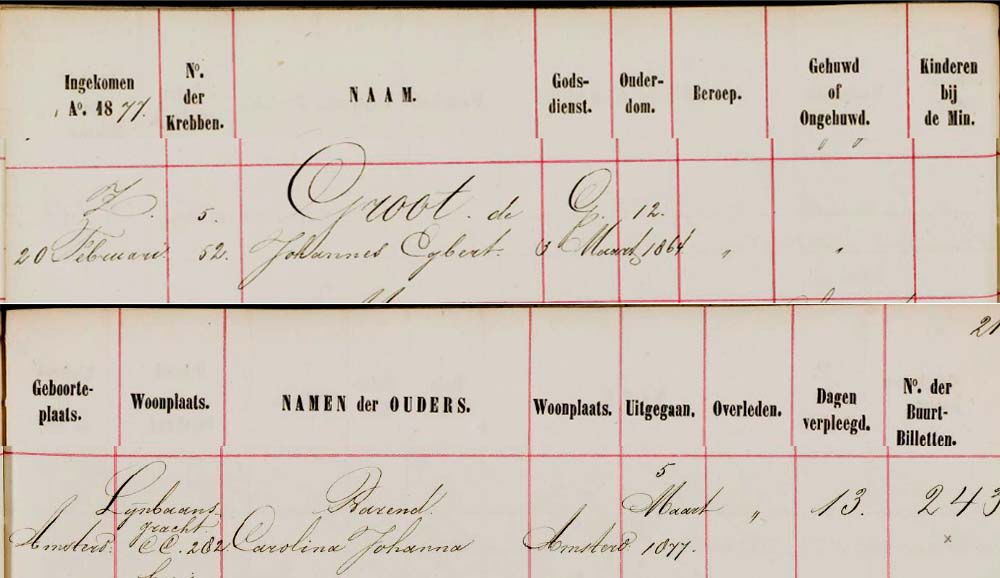 Ingekomen
A°. 1877.
N°.
der
Krebben.
NAAM.
Gods-
dienst.
Ouder-
dom.
Beroep.
Gehuwd
of
Ongehuwd.
Kinderen
bij
de Min.
" "
Z. 5. Groot. de G. 12.
20 Februari 52. Johannes Egbert. 3 Maart 1864 " "
21
Geboorte-
plaats.
Woonplaats.
NAMEN der OUDERS.
Woonplaats.
Uitgegaan.
Overleden.
Dagen
verpleegd.
N°. der
Buurt-
Billetten.
Lijnbaans Barend. 5 Maart " 13. 243
gracht.
Amsterd. CC. 282. Carolina Johanna Amsterd. 1877. x